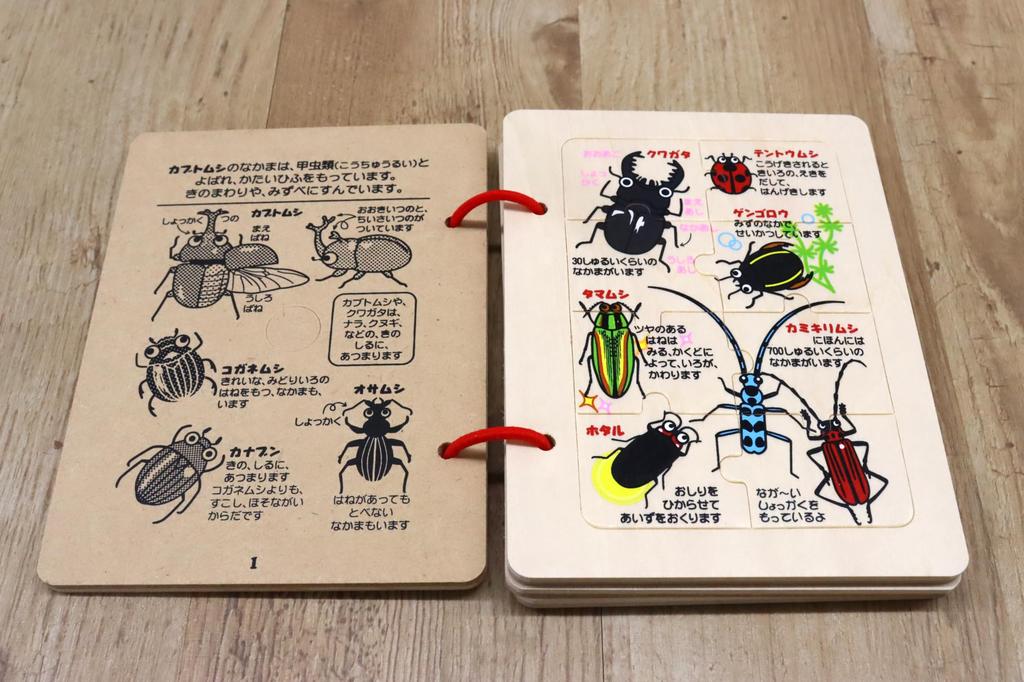 カブトムシのなかまは、甲虫類(こうちゅうるい)と
よばれ、かたいひふをもっています。
きのまわりや、みずべにすんでいます。
カブトムシ
しょっかく
つの
まえ
ばね
うしろ
ばね
おおきいつのと、
ちいさいつのが
ついています
カブトムシや、
クワガタは、
ナラ、クヌギ、
などの、きの
しるに、
あつまります
コガネムシ
きれいな、みどりいろの
はねをもつ、なかまも、
います
オサムシ
しょっかく
はねがあっても
とべない
なかまもいます
カナブン
きの、しるに、
あつまります
コガネムシよりも、
すこし、ほそながい
からだです
1
クワガタ
おおあご
しょっ
かく
まえ
あし
なかあし
うしろ
あし
30しゅるいくらいの
なかまがいます
テントウムシ
こうげきされると
きいろの、えきを
だして、
はんげきします
ゲンゴロウ
みずのなかで
せいかつしています
タマムシ
ツヤのある
はねは
みる、かくどに
よって、いろが、
かわります
カミキリムシ
にほんには
700しゅるいくらいの
なかまがいます
ホタル
おしりを
ひからせて
あいずをおくります
なが〜い
しょっかくを
もっているよ